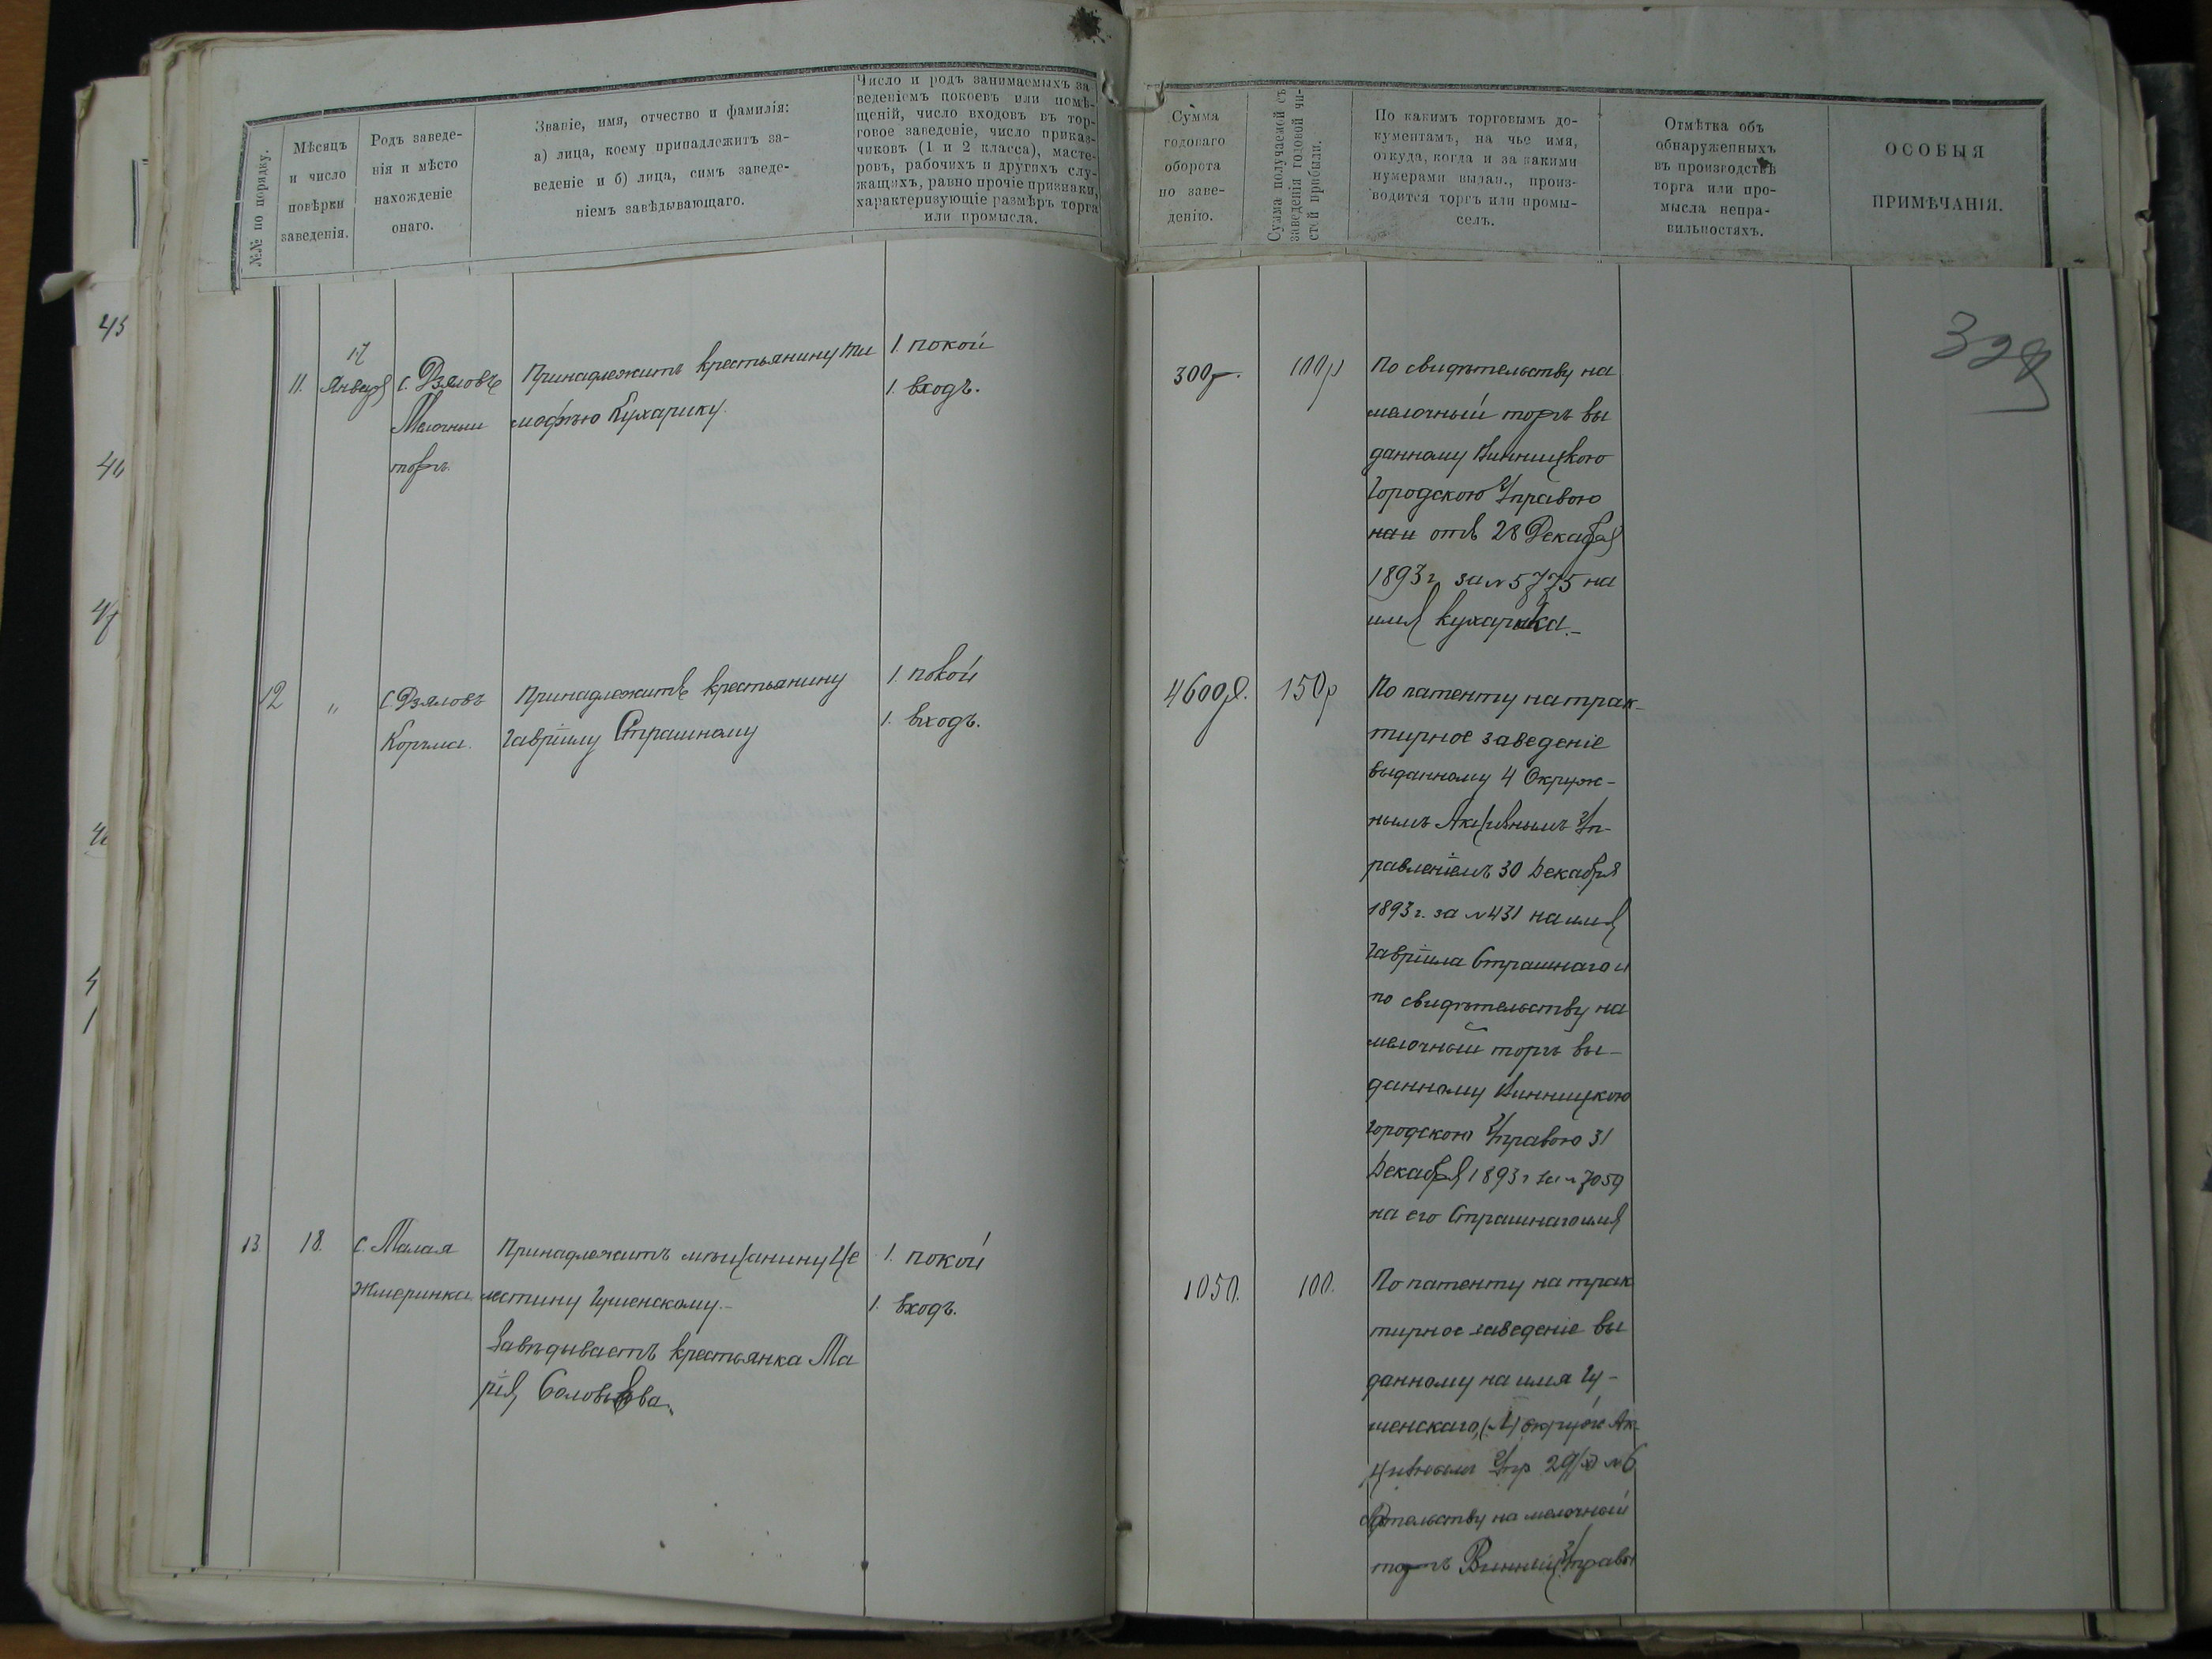 №№ по порядку.
Мѣсяцъ
и число
повѣрки
заведенія.
Родъ заведе-
нія и мѣсто
нахожденіе
онаго.
Званіе, имя, отчество и фамилія:
а) лица, коему принадлежитъ за-
веденіе и б) лица, симъ заведе-
ніемъ завѣдывающаго.
Число и родъ занимаемыхъ за
веденіемъ покоевъ или помѣ-
щеній, число входовъ въ тор-
говое заведеніе, число приказ-
чиковъ (1 и 2 класса), масте-
ровъ, рабочихъ и другихъ слу-
жащихъ, равно прочіе признаки,
характеризующіе размѣръ торга
или промысла.
Сумма
годоваго
оборота
по заве-
денію.
Сумма получаемой съ
заведенія годовой чи-
стой прибыли.
По какимъ торговымъ до-
кументамъ, на чье имя,
откуда, когда и за какими
нумерами выдан., произ-
водится торгъ или промы-
селъ.
Отмѣтка объ
обнаруженныхъ
въ производствѣ
торга или про-
мысла непра-
вильностяхъ.
ОСОБЫЯ
ПРИМѢЧАНІЯ.
45
11.
17
Января
с. Дзяловъ
Мелочный
торгъ
Принадлежитъ крестьянину Ти
мофѣю Кухарику.
1. покой
1. входъ.
300р.
100р
По свидѣтельству на
мелочный торгъ вы
данному Винницкою
Городскою Управою
отъ 28 Декабря
1893 г. за №5775 на
имя Кухарика.-
12
"
с. Дзяловъ
Корчма.
Принадлежитъ крестьянину
Гавріилу Страшному
1. покой
1. входъ.
4600р.
150р
По патенту на трак-
тирное заведеніе
выданному 4 Окруж-
нымъ Акцизнымъ Уп-
равленіемъ 30 Декабря
1893 г. за №431 на имя
Гавріила Страшнаго и
по свидѣтельству на
мелочный торгъ вы-
данному Винницкою
Городскою Управою 31
Декабря 1893 г за №7059
на его Страшнаго имя
13.
18.
с. Малая
Жмеринка
Принадлежитъ мѣщанину Це
лестину Гуменскому.-
Завѣдываетъ крестьянка Ма
рія Соловьева.
1. покой
1. входъ.
1050.
100.
По патенту на трак
тирное заведеніе вы
данному на имя Гу-
менскаго, Ак-
Упр 29 №6
на мелочный
торгъ Управы